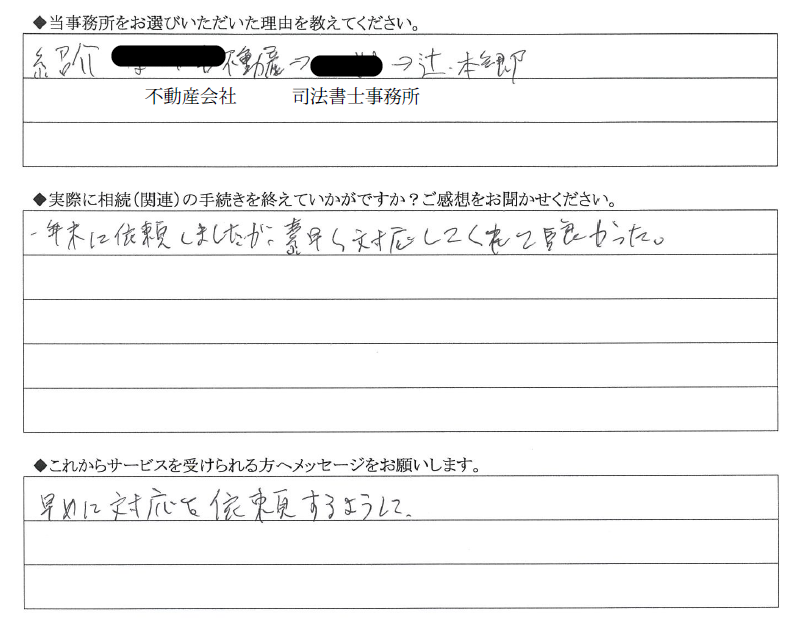 ◆当事務所をお選びいただいた理由を教えてください。
紹介 不動産⇒ ⇒辻・本郷
不動産会社 司法書士事務所
◆実際に相続(関連)の手続きを終えていかがですか？ご感想をお聞かせください。
・年末に依頼しましたが、素早く対応してくれて良かった。
◆これからサービスを受けられる方へメッセージをお願いします。
早めに対応を依頼するようにして、